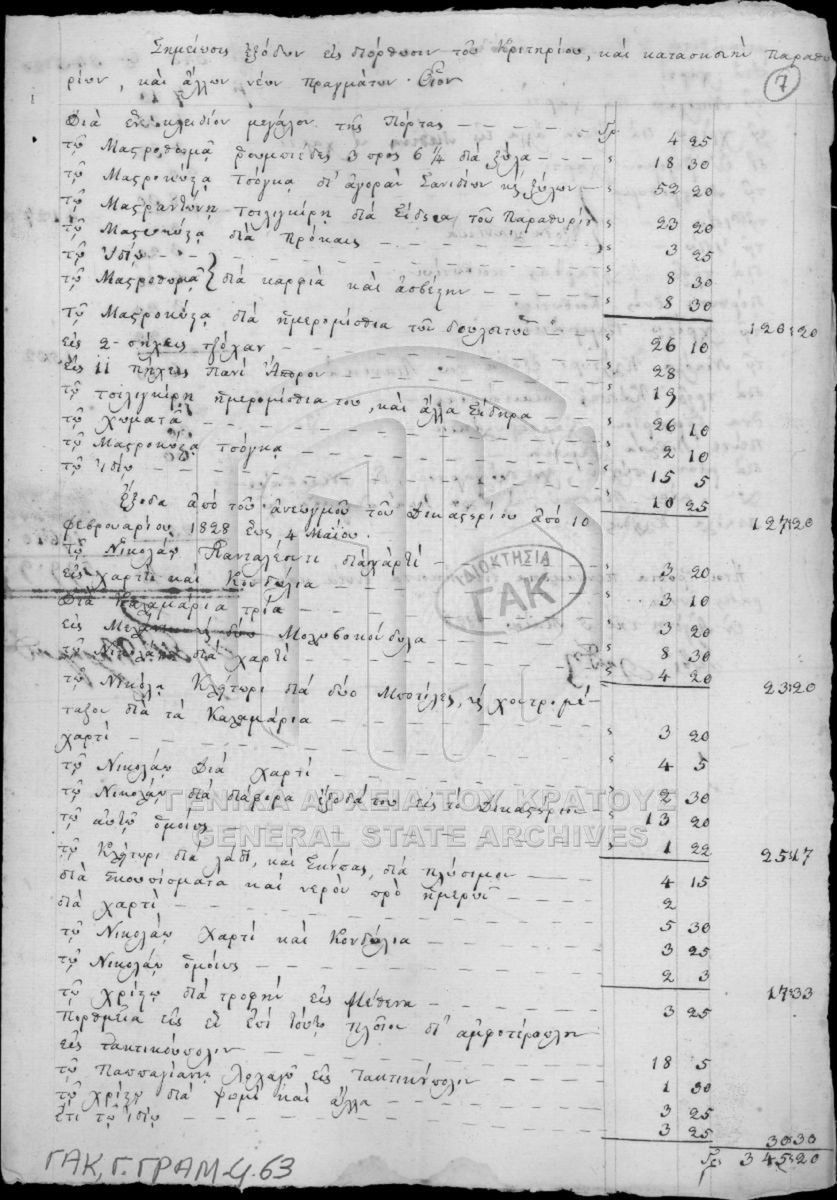 Σημείωσις ἐξόδων εἰς διόρθωσιν τοῦ Κριτηρίου, καὶ κατασκευὴν παραθυ
ρίων, καὶ ἄλλων νέων πραγμάτων. Οἷον
7
Διὰ ἓν κλειδίον μεγάλον τῆς Πόρτας — — — — Γρ. 4 25
τῷ Μαςροθωμᾷ 3 προς 6 1/4 διὰ ξύλα — — — 18 30
τῷ Μαςροκόζα τζόγκα δι' ἀγορὰν Σανιδίων κ ξύλων — 52 20
τῷ Μαςραντώνη τζιλιγκίρη διὰ Σίδερα τοῦ Παραθυρίου 23 20
τῷ Μαςροκόζα διὰ πρόκαις — — — — 3 25
τῷ ἰδίῳ — — — — 8 30
τῷ Μαςροθωμᾷ } διὰ καρφιὰ καὶ ἀσβέςην — — — 8 30
120:20
τῷ Μαςροκόζα διὰ ἡμερομίσθια τῶν — — 26 10
εἰς 2 πήχεις τζόχαν — — — — 28
εἰς 11 πήχεις Πανὶ Ἄσπρον — — — — 19
τῷ τζιλιγκίρη ἡμερομίσθια του, καὶ ἄλλα Σίδηρα — — 26 10
τῷ χωματᾷ — — — — 2 10
τῷ Μαςροκόζα τζόγκα — — — — 15 5
τῷ ἰδίῳ — — — — 10 25
127:20
Ἔξοδα ἀπὸ τοῦ ἀνεωγμοῦ τοῦ Δικαςηρίου ἀπὸ 10
φεβρουαρίου 1828 ἕως 4 Μαΐου.
τῷ Νικολάῳ Πανταλέοντι διὰ χαρτὶ — — — 3 20
εἰς χαρτὶ καὶ Κονδύλια — — — — 3 10
Διὰ Καλαμάρια τρία — — — — 3 20
εἰς δύο Μολυβοκόνδυλα — — — 8 30
τῷ Νικολάῳ διὰ χαρτὶ — — — — 4 20
23:20
τῷ Νικόλᾳ Κλήτορι διὰ δύο Μποτίλες, κ
διὰ τὰ Καλαμάρια — — — — 3 20
χαρτὶ — — — — 4 5
τῷ Νικολάῳ Διὰ χαρτὶ — — — — 2 30
τῷ Νικολάῳ διὰ διάφορα ἔξοδά του εἰς τὸ Δικαςήριον 13 20
τῷ αὐτῷ ὁμοίως — — — — 1 22
25:17
τῷ Κλήτορι διὰ λάδι, καὶ Σκούπας, διὰ πλύσιμον — — 4 15
διὰ Σκουπίσματα καὶ νερὸν πρὸ ἡμερῶν — — 2
διὰ χαρτὶ — — — — 5 30
τῷ Νικολάῳ Χαρτὶ καὶ Κονδύλια — — 3 25
τῷ Νικολάῳ ὁμοίως — — — — 2 3
17:33
τῷ Χρίςῳ διὰ τροφὴν εἰς Μέθενα — — — 3 25
Πορθμεῖα εἰς πλοῖον δι' ἀμφοτέρους
εἰς τακτικούπολιν — — — — 18 5
τῷ Παππαγιάννῃ εἰς Τακτικούπολιν — — — 1 30
τῷ Χρίςῳ διὰ ψωμὶ καὶ ἄλλα — — — 3 25
ἔτι τῷ ἰδίῳ — — — — 3 25
30:30
Γρ. 345:20
ΙΔΙΟΚΤΗΣΙΑ
ΓΑΚ
ΓΕΝΙΚΑ ΑΡΧΕΙΑ ΤΟΥ ΚΡΑΤΟΥΣ
GENERAL STATE ARCHIVES
ΓΑΚ, Γ. ΓΡΑΜ. Φ. 63